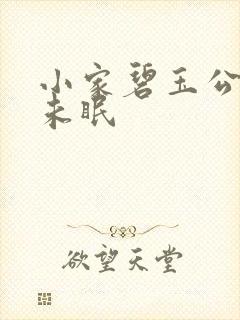 小家碧玉公
未眠
欲望天堂